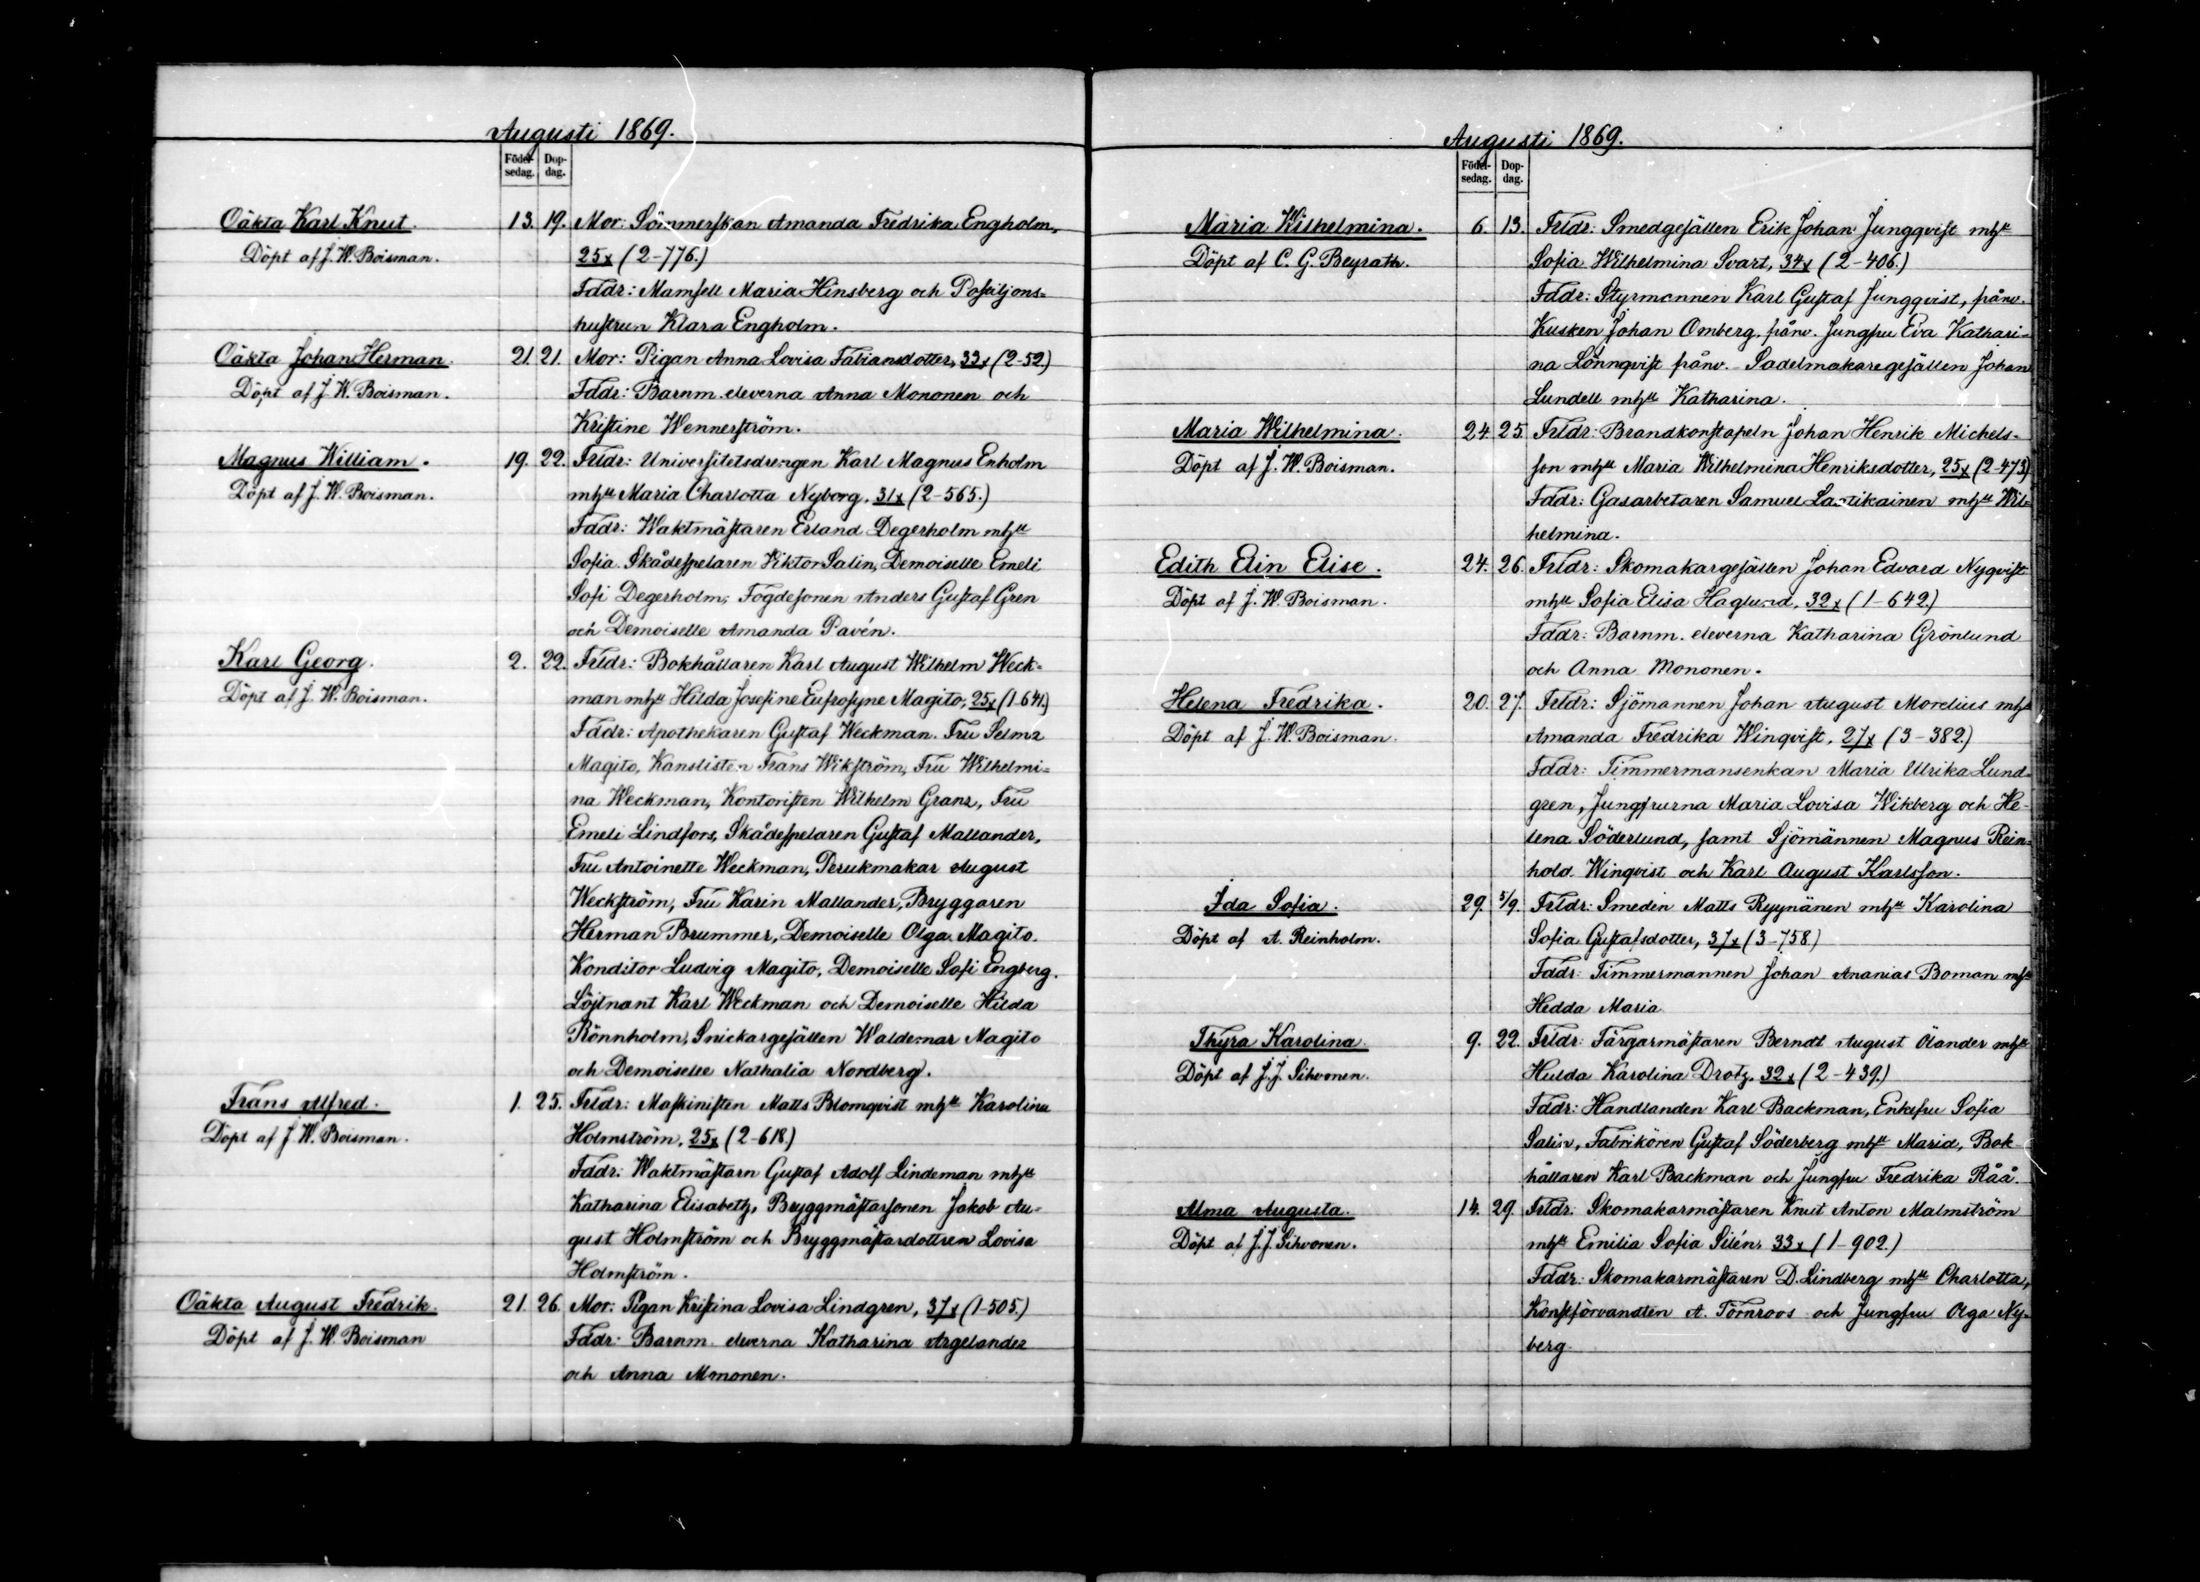 Augusti 1869.
Födel- Dop-
sedag. dag.
Oäkta Karl Knut. 13. 19. Mor: Sömmerskan Amanda Fredrika Engholm,
Döpt af J. W. Boisman. 25x (2-776.)
Fddr: Mamsell Maria Hinsberg och Postiljons=
hustrun Klara Engholm.
Oäkta Johan Herman. 21. 21. Mor: Pigan Anna Lovisa Fabiansdotter, 33x (2-52)
Döpt af J. W. Boisman. Fddr: Barnm. eleverna Anna Mononen och
Kristine Wennerström.
Magnus William. 19. 22. Frldr: Universitetsdrengen Karl Magnus Enholm
Döpt af J. W. Boisman. mhu Maria Charlotta Nyborg, 31x (2-565.)
Fddr: Waktmästaren Erland Degerholm mhu
Sofia. Skådespelaren Viktor Salin, Demoiselle Emeli
Sofi Degerholm, Fogdesonen Anders Gustaf Gren
och Demoiselle Amanda Pavén.
Karl Georg. 2. 22. Frldr: Bokhållaren Karl August Wilhelm Weck=
Döpt af J. W. Boisman. man mhu Hilda Josefine Eufrosyne Magito, 25x (1-641.)
Fddr: Apothekaren Gustaf Weckman. Fru Selma
Magito, Kanslisten Frans Wikström, Fru Wilhelmi=
na Weckman, Kontoristen Wilhelm Grans, Fru
Emeli Lindfors, Skådespelaren Gustaf Mallander,
Fru Antoinette Weckman, Perukmakar August
Weckström, Fru Karin Mallander, Bryggaren
Herman Brummer, Demoiselle Olga Magito.
Konditor Ludvig Magito, Demoiselle Sofi Engberg.
Löjtnant Karl Weckman och Demoiselle Hilda
Rönnholm, Snickargesällen Waldemar Magito
och Demoiselle Nathalia Nordberg.
Frans Alfred. 1. 25. Frldr: Maskinisten Matts Blomqvist mhu Karolina
Döpt af J. W. Boisman. Holmström, 25x (2-618.)
Fddr: Waktmästarn Gustaf Adolf Lindeman mhu
Katharina Elisabeth, Bryggmästarsonen Jakob Au=
gust Holmström och Bryggmästardottren Lovisa
Holmström.
Oäkta August Fredrik. 21. 26. Mor: Pigan Kristina Lovisa Lindgren, 37x (1-505.)
Döpt af J. W. Boisman Fddr: Barnm. eleverna Katharina Argelander
och Anna Mmonen.
Augusti 1869.
Födel- Dop-
sedag. dag.
Maria Wilhelmina. 6. 13. Frldr: Smedgesällen Erik Johan Jungqvist mhu
Döpt af C. G. Beyrath. Sofia Wilhelmina Svart, 34x (2-406.)
Fddr: Styrmannen Karl Gustaf Jungqvist, frånv.
Kusken Johan Omberg, frånv. Jungfru Eva Kathari-
na Lönnqvist frånv. Sadelmakaregesällen Johan
Lundell mhu Katharina.
Maria Wilhelmina. 24. 25. Frldr: Brandkonstapeln Johan Henrik Michels-
Döpt af J. W. Boisman. son mhu Maria Wilhelmina Henriksdotter, 25x (2-473)
Fddr: Gasarbetaren Samuel mhu Wil=
helmina.
Edith Elin Elise. 24. 26. Frldr: Skomakargesällen Johan Edvard Nyqvist
Döpt af J. W. Boisman. mhu Sofia Elisa Haglund, 32x (1-642.)
Fddr: Barnm. eleverna Katharina Grönlund
och Anna Mononen.
Helena Fredrika. 20. 27. Frldr: Sjömannen Johan August Morelius mhu
Döpt af J. W. Boisman. Amanda Fredrika Winqvist, 27x (3-382.)
Fddr: Timmermansenkan Maria Ulrika Lund=
gren, Jungfrurna Maria Lovisa Wikberg och He-
lena Söderlund, samt Sjömännen Magnus Rein=
hold Winqvist och Karl August Karlsson.
Ida Sofia. 29. 5/9. Frldr: Smeden Matts Ryynänen mhu Karolina
Döpt af A. Reinholm. Sofia Gustafsdotter, 37x (3-758.)
Fddr: Timmermannen Johan Ananias Boman mhu
Hedda Maria
Thyra Karolina. 9. 22. Frldr: Färgarmästaren Berndt August Ölander mhu
Döpt af J. J. Sihvonen. Hulda Karolina Drotz, 32x (2-439.)
Fddr: Handlanden Karl Backman, Enkefru Sofia
Salin, Fabrikören Gustaf Söderberg mhu Maria, Bok-
hållaren Karl Backman och Jungfru Fredrika Råå.
Alma Augusta. 14. 29. Frldr: Skomakarmästaren Knut Anton Malmström
Döpt af J. J. Sihvonen. mhu Emilia Sofia Silén, 33x (1-902.)
Fddr: Skomakarmästaren D. Lindberg mhu Charlotta,
Konstförvandten A. Törnroos och Jungfru Olga Ny-
berg.